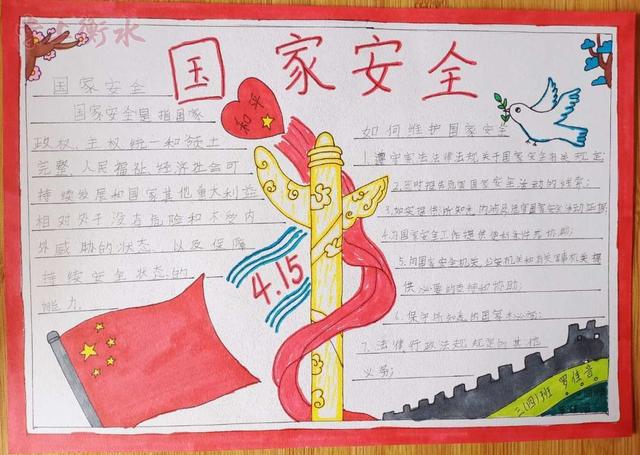 掌上衡水
国家安全
国家安全
国家安全是指国家
政权、主权统一和领土
完整、人民福祉、经济社会可
持续发展和国家其他重大利益
相对处于没有危险和不受内
外威胁的状态，以及保障
持续安全状态的
能力.
和平
4.15
如何维护国家安全
1.遵守宪法法律法规关于国家安全有关规定
2.及时提告危害国家安全活动的线索;
3.如实提供所知悉的涉及危害国家安全活动证据
4.为国家安全工作提供便利条件或协助;
5.向国家安全机关、公安机关和有关军事机关提
供必要的支持和协助;
6.保守所知悉的国家秘密;
7.法律行政法规规定的其他
义务;
三(四)班 罗佳音